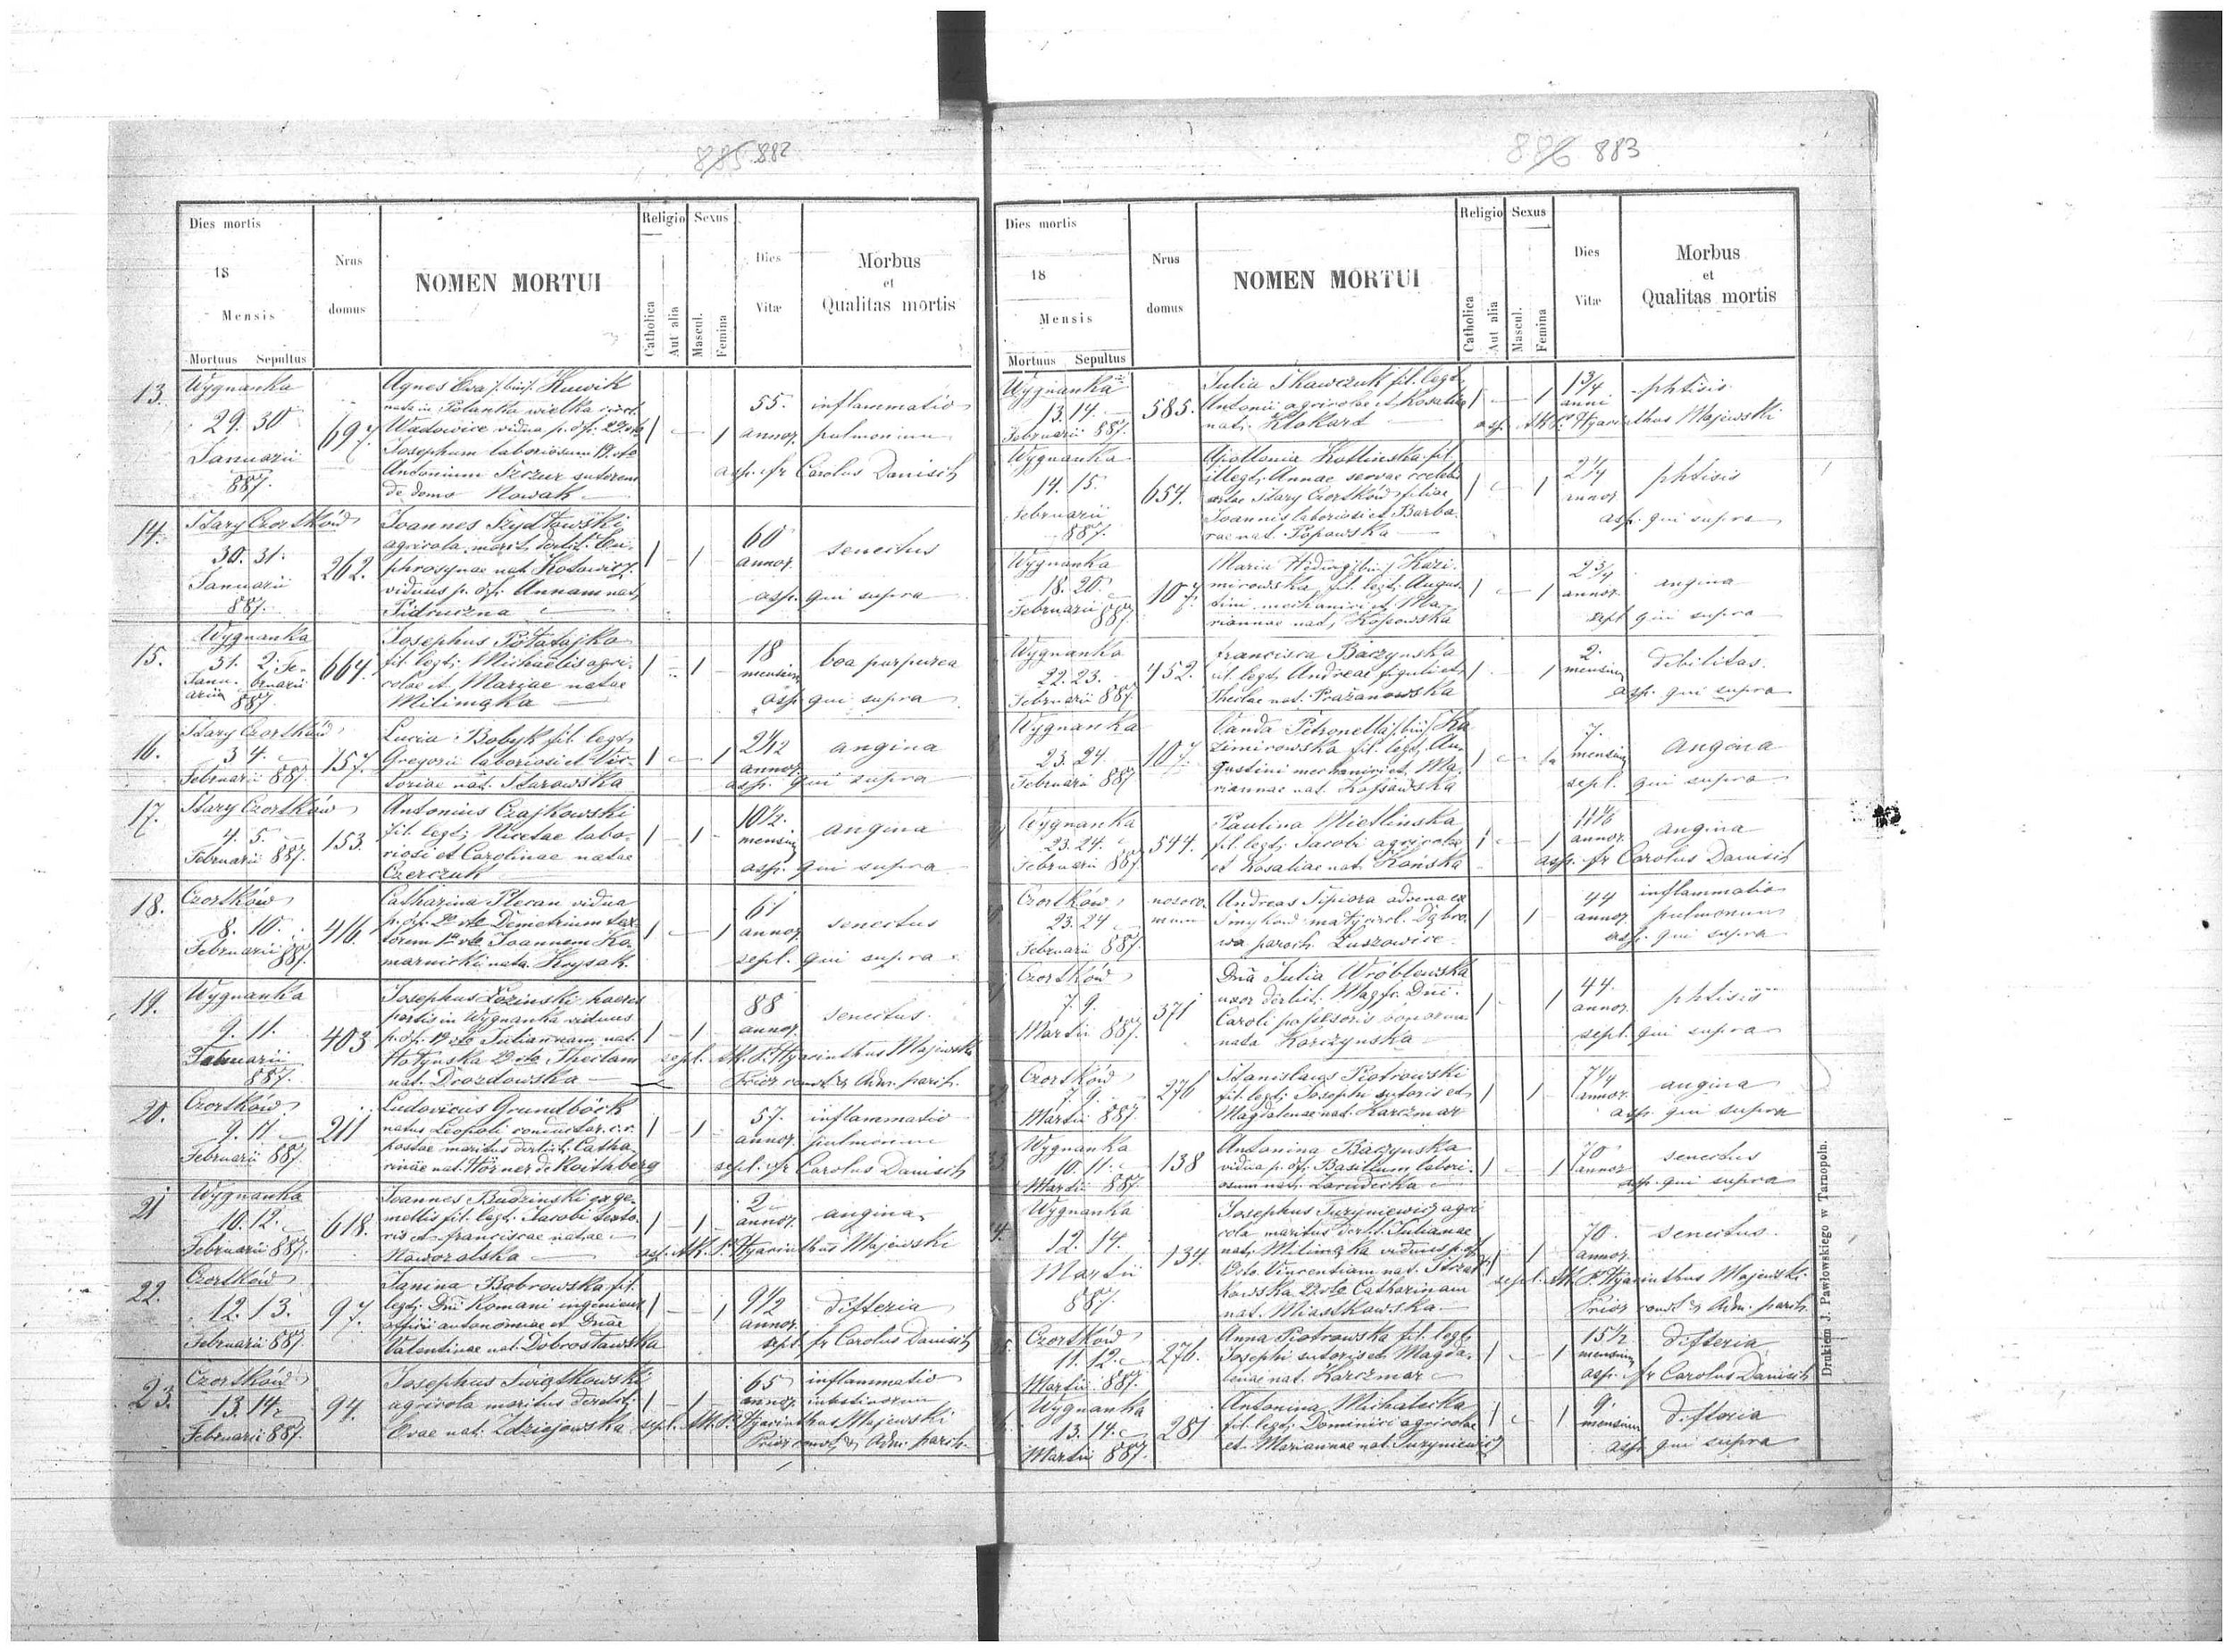 885 882
Dies mortis
18
Mensis
Mortuus Sepultus
Nrus
domus
NOMEN MORTUI
Religio
Catholica
Aut alia
Sexus
Mascul.
Femina
Dies
Vitæ
Morbus
et
Qualitas mortis
13.
Wygnanka
29. 30
Januarii
887.
697.
Agnes Eva /bin/ Huwik
nata in Polanka wielka circl.
Wadowice vidua p. def. 2do vto
Josephum laboriosum 1o vto
Antonium Szczur sutorem
de domo Nowak
1 — 1
55.
annor.
inflammatio
pulmonum
asp. fr Carolus Danisch
14.
Stary Czortków
30. 31.
Januarii
887.
262.
Joannes Szydłowski
agricola marit. derelict. Eu-
phrosynae nat. Kotowicz
viduus p. def. Annam nat.
Pidruczna
1 — 1
60
annor.
senectus
asp. qui supra
15.
Wygnanka
31. 2. Fe-
Janu- bruarii
arii 887
664.
Josephus Połatajko
fil. legt. Michaëlis agri-
colae et Mariae natae
Milimąka
1 — 1
18
mensium
boa purpurea
asp. qui supra
16.
Stary Czortków
3 4.
Februarii 887.
157.
Lucia Bobyk fil. legt.
Gregorii laboriosi et Vic-
toriae nat. Sturowska
1 — 1
2 1/12
annor.
angina
asp. qui supra
17.
Stary Czortków
4. 5.
Februarii 887.
153.
Antonius Czajkowski
fil. legt. Nicetae labo-
riosi et Carolinae natae
Czerczuk
1 — 1
10 1/2.
mensium
angina
asp. qui supra
18.
Czortków
8. 10.
Februarii 887.
416.
Catharina Plecan vidua
p. def. 2o vto Demetrium tex-
torem 1o vto Joannem Ko-
marnicki nata Krysak.
1 — 1
61
annor.
senectus
sepl. qui supra
19.
Wygnanka
9. 11.
Februarii
887.
403
Josephus Łoziński haeres
partis in Wygnanka viduus
p. def. 1o vto Juliannam nat.
Hołyńska 2do vto Theclam
nat. Drozdowska
1 — 1
88
annor.
senectus.
sepl. M. P. Hyacinthus Majewski
Prior convt. & Adm. paroch.
20.
Czortków
9. 11
Februarii 887.
211
Ludovicus Grundböck
natus Leopoli conductor. c. r.
postae maritus derelict. Catha-
rinae nat. Hörner de Roithberg
1 — 1
57.
annor.
inflammatio
pulmonum
sepl. fr Carolus Danisch
21
Wygnanka
10. 12.
Februarii 887.
618.
Joannes Budzinski ex ge-
mellis fil. legt. Jacobi texto-
ris et Franciscae natae
Naworolska
1 — 1
2
annor.
angina
asp. M. P. Hyacinthus Majewski
22.
Czortków
12. 13.
Februarii 887.
97.
Janina Bobrowska fil.
legt. Dni Romani ingenieur
officii autonomiae et Dnae
Valentinae nat. Dobrosławska
1 — 1
9 1/2
annor.
difteria
sept. fr Carolus Danisch
23.
Czortków
13. 14.
Februarii 887.
94.
Josephus Świątkowski
agricola maritus derelict.
Evae nat. Zdziejowska
1 — 1
65
annor.
inflammatio
intestinorum
sepl. M. P. Hyacinthus Majewski
Prior convt. & Adm. paroch.
886 883
Dies mortis
18
Mensis
Mortuus Sepultus
Nrus
domus
NOMEN MORTUI
Religio
Catholica
Aut alia
Sexus
Mascul.
Femina
Dies
Vitæ
Morbus
et
Qualitas mortis
Wygnanka
13. 14.
Februarii 887.
585.
Julia Tkawczuk fil. legt.
Antonii agricolae et Rosaliae
nat. Klakard
1 — 1
1 3/4
anni
phtisis
asp. M. P. Hyacinthus Majewski
Wygnanka
14. 15.
Februarii
887.
654.
Apollonia Kotlinska fil.
illegt. Annae servae coelebis
ortae Stary Czortków filiae
Joannis laboriosi et Barba-
rae nat. Popowska
1 — 1
2 1/4
annor
phtisis
asp. qui supra
Wygnanka
18. 20.
Februarii 887.
107.
Maria /bin/ Kazi-
mirowska fil. legt. Augus-
tini mechanici et Ma-
riannae nat. Kossowska
1 — 1
2 3/4
annor.
angina
sept. qui supra
Wygnanka
22. 23.
Februarii 887.
452.
Francisca Baczynska
fil. legt. Andreae figuli et
Theclae nat. Prażanowska
1 — 1
2.
mensium
debilitas.
asp. qui supra
Wygnanka
23. 24.
Februarii 887.
107.
Vanda Petronella /bin/ Ka-
zimirowska fil. legt. Au-
gustini mechanici et Ma-
riannae nat. Kossowska
1 — 1
7.
mensium
angina
sepl. qui supra
Wygnanka
23. 24.
Februarii 887.
544.
Paulina Mietlinska
fil. legt. Jacobi agricolae
et Rosaliae nat. Końska
1 — 1
11 1/6
annor.
angina
asp. fr Carolus Danisch
Czortków
23. 24
Februarii 887.
nosoco-
mium
Andreas Sipiora advena ex
Smyków mały circl. Dąbro-
wa paroch. Luszowice
1 1
44
annor.
inflammatio
pulmonum
asp. qui supra
Czortków
7. 9.
Martii 887.
371
Dna Julia Wróblewska
uxor derelict. Magfr. Dni.
Caroli possessoris bonorum
nata Korczynska
1 1
44.
annor.
phtisis
sept. qui supra
Czortków
7. 9.
Martii 887.
276
Stanislaus Piotrowski
fil. legt. Josephi sutoris et
Magdalenae nat. Karczmar
1 1
7 1/4
annor.
angina
asp. qui supra
Wygnanka
10. 11.
Martii 887.
138
Antonina Baczynska
vidua p. def. Basilium labori-
osum nat. Zarudecka
1 — 1
70
annor
senectus
asp. qui supra
Wygnanka
12. 14.
Martii
887.
134.
Josephus Juzyniewicz agri-
cola maritus derelict. Julianae
nat. Milimąka viduus p. def.
1o vto Vincentiam nat. Strzał-
kowska 2do vto Catharinam
nat. Miastkowska
1 1
70.
annor.
senectus.
sepl. M. P. Hyacinthus Majewski
Prior convt. & Adm. paroch.
Czortków
11. 12.
Martii 887.
276.
Anna Piotrowska fil. legt.
Josephi sutoris et Magda-
lenae nat. Karczmar
1 — 1
15 1/2
mensium
difteria
asp. fr Carolus Danisch
Wygnanka
13. 14.
Martii 887.
281
Antonina Michalecka
fil. legt. Dominici agricolae
et Mariannae nat. Juzyniewicz
1 — 1
9.
mensium
difteria
asp. qui supra
Drukiem J. Pawłowskiego w Tarnopolu.